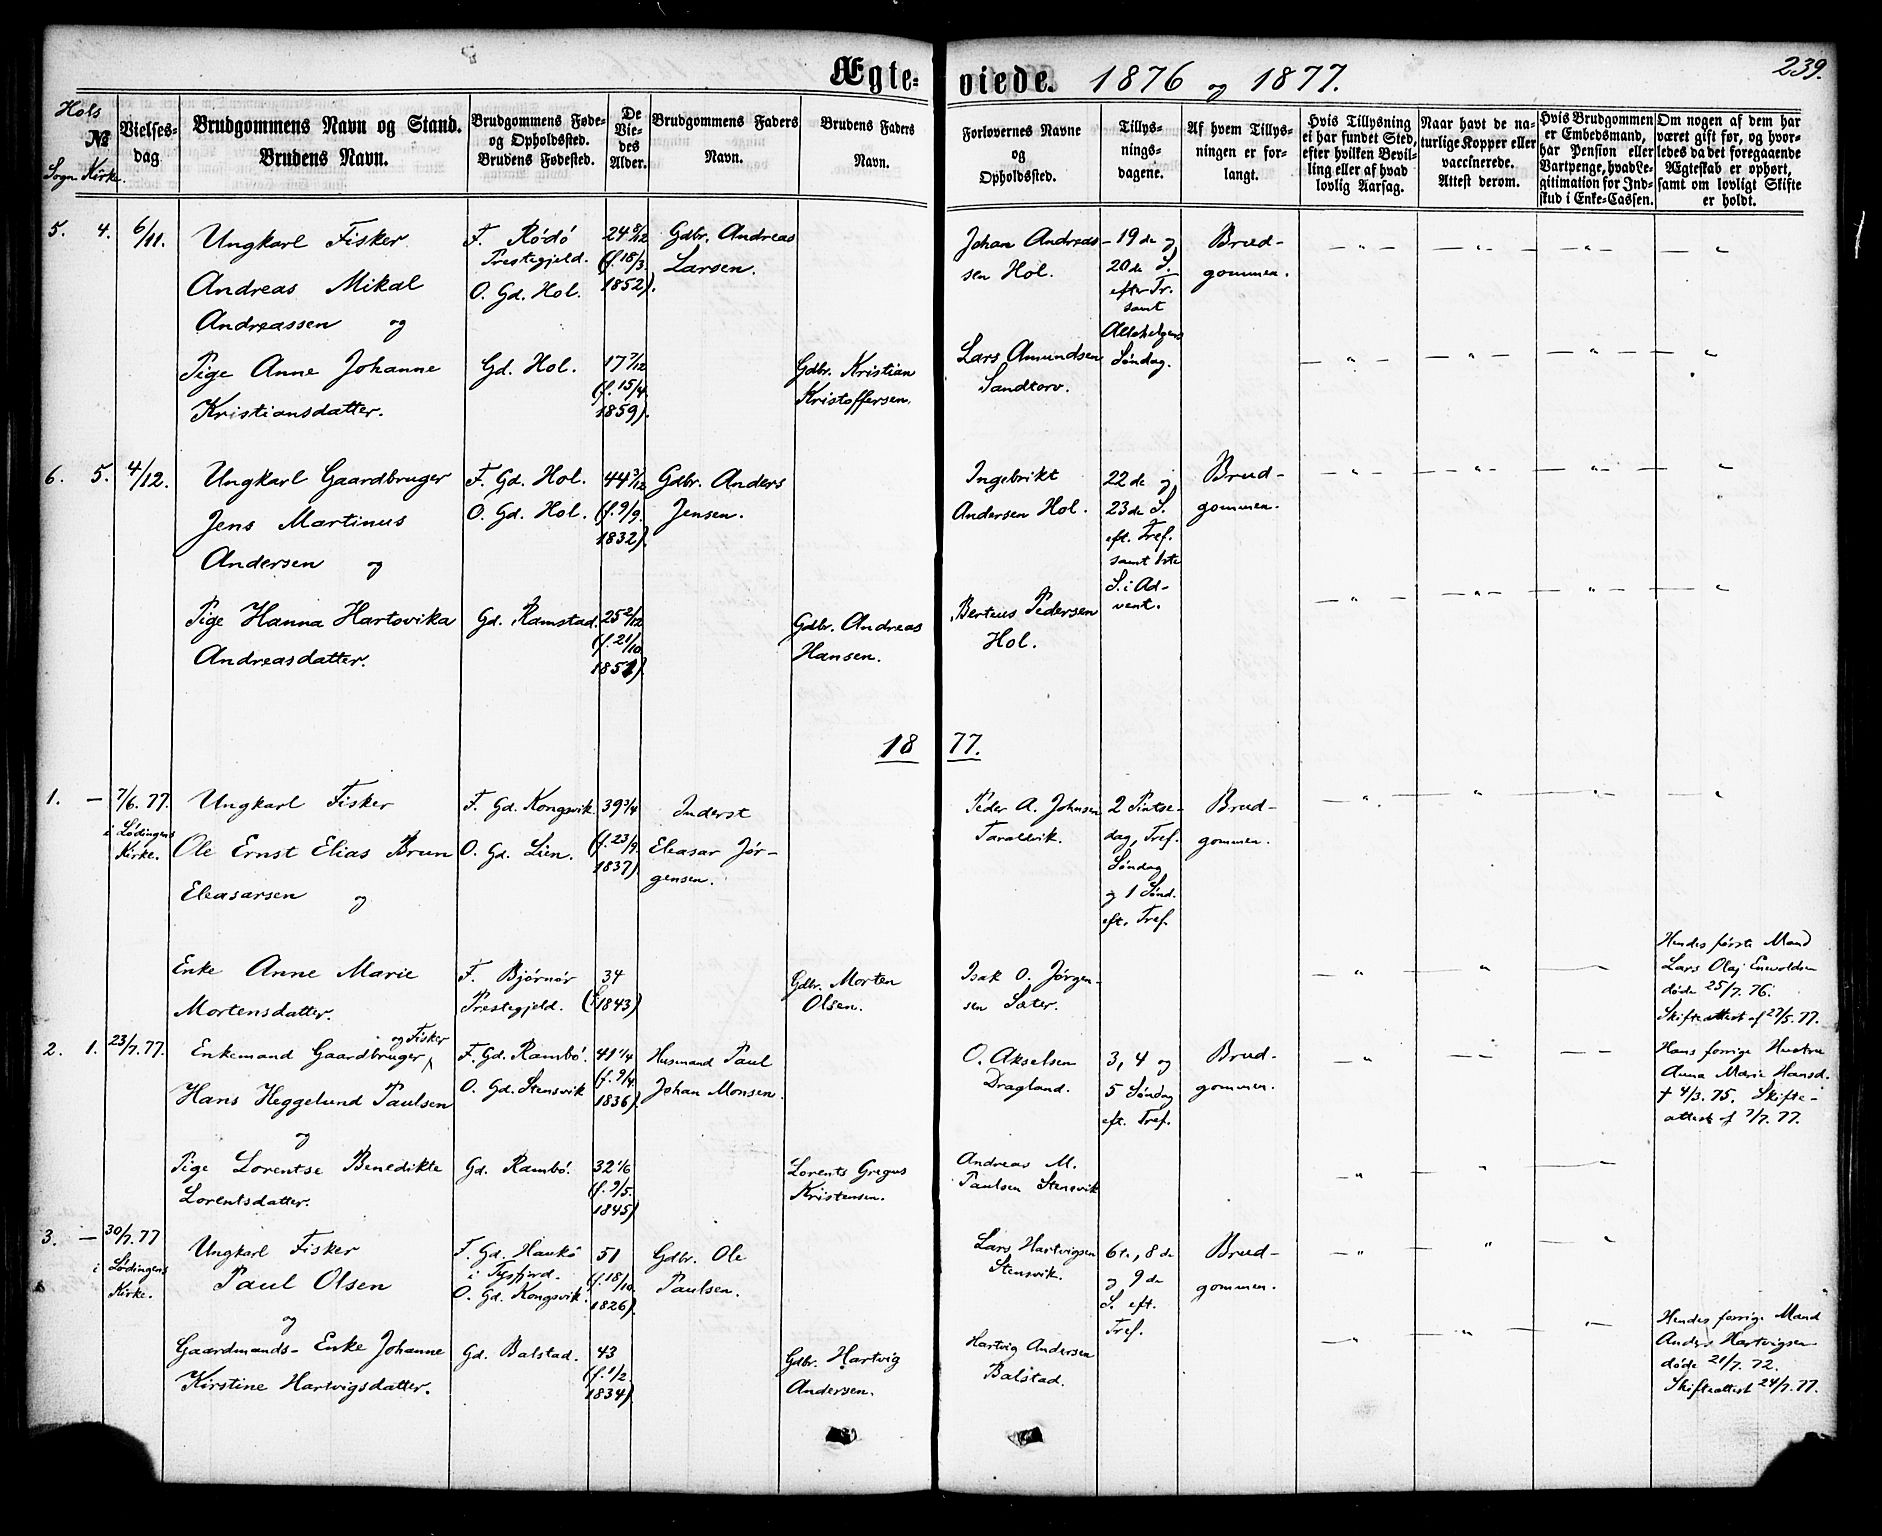 Ægte-viede. 1876 og 1877.
239.
Hols
№
Sogn Kirke.
Vielses-
dag.
Brudgommens Navn og Stand.
Brudens Navn.
Brudgommens Føde-
og Opholdssted.
Brudens Fødested.
De
Vie-
des
Alder.
Brudgommens Faders
Navn.
Brudens Faders
Navn.
Forlovernes Navne
og
Opholdssted.
Tillys-
nings-
dagene.
Af hvem Tillys-
ningen er for-
langt.
Hvis Tillysning
ei har fundet Sted,
efter hvilken Bevil-
ling eller af hvad
lovlig Aarsag.
Naar havt de na-
turlige Kopper eller
vaccinerede.
Attest derom.
Hvis Brudgommen
er Embedsmand,
har Pension eller
Vartpenge, hvad Le-
gitimation for Ind-
skud i Enke-Cassen.
Om nogen af dem har
været gift før, og hvor-
ledes da det foregaaende
Ægteskab er ophørt,
samt om lovligt Skifte
er holdt.
5. 4. 6/11.
Ungkarl Fisker
Andreas Mikal
Andreassen og
F. Rödö
Prestegjeld.
O. Gd. Hol.
24 8/12
(f. 18/3
1852).
Gdbr. Andreas
Larsen.
Johan Andreas-
sen Hol.
19de og
20de S.
efter Tr.
samt
Allehelgens
Søndag.
Brud-
gommen.
Pige Anne Johanne
Kristiansdatter.
Gd. Hol.
17 7/12
(f. 15/4
1859).
Gdbr. Kristian
Kristoffersen.
Lars Amundsen
Sandtorv.
6. 5. 4/12.
Ungkarl Gaardbruger
Jens Martinus
Andersen og
F. Gd. Hol.
O. Gd. Hol.
44 3/12
(f. 9/9.
1832).
Gdbr. Anders
Jensen.
Ingebrikt
Andersen Hol.
22de og
23de S.
eft. Tref.
samt 1ste
S. i Ad-
vent.
Brud-
gommen.
Pige Hanna Hartsvika
Andreasdatter.
Gd. Ramstad.
25 2/12
(f. 21/10
1851).
Gdbr. Andreas
Hansen.
Berteus Pedersen
Hol.
1877.
1. — 7/6. 77.
i Lödingens
Kirke.
Ungkarl Fisker
Ole Ernst Elias Brun
Eleasarsen og
F. Gd. Kongsvik
O. Gd. Lien.
39 3/4
(f. 23/9.
1837).
Inderst
Eleasar Jör-
gensen.
Peder A. Johnsen
Taraldvik.
2 Pintse-
dag, Tref.
Søndag
og 1 Sønd.
eft. Tref.
Brud-
gommen.
Enke Anne Marie
Mortensdatter.
F. Bjørnør
Prestegjeld.
34
(f. 1843)
Gdbr. Morten
Olsen.
Isak O. Jørgen-
sen Sæter.
Hendes første Mand
Lars Olaj Enevoldsen
døde 25/7. 76.
Skifteattest af 27/5. 77.
2. 1. 23/7. 77.
Enkemand Gaardbruger og Fisker
Hans Heggelund Paulsen
og
F. Gd. Rambö.
O. Gd. Stensvik
41 1/4
(f. 9/4.
1836).
Husmand Paul
Johan Monsen.
O. Akselsen
Dragland.
3, 4 og
5 Søndag
eft. Tref.
Brud-
gommen.
Hans forrige Hustru
Anna Marie Hansd.
† 4/3. 75. Skifte-
attest af 7/7. 77.
Pige Lorentse Benedikte
Lorentsdatter.
Gd. Rambö.
32 1/6
(f. 9/5.
1845)
Lorents Gregus
Kristensen.
Andreas M.
Paulsen Stensvik
3. — 30/7. 77
i Lödingens
Kirke.
Ungkarl Fisker
Paul Olsen
og
F. Gd. Haukö
i Tysfjord.
O. Gd. Kongsvik.
51
(f. 18/10.
1826).
Gdbr. Ole
Paulsen.
Lars Hartvigsen
Stensvik.
6te, 8de
og 9de
S. eft.
Tref.
Brud-
gommen.
Gaardmands-Enke Johanne
Kirstine Hartvigsdatter.
Gd. Balstad.
43
(f. 1/2.
1834)
Gdbr. Hartvig
Andersen.
Hartvig Andersen
Balstad.
Hendes forrige Mand
Anders Hartvigsen
døde 21/7. 72.
Skifteattest 24/7. 77.